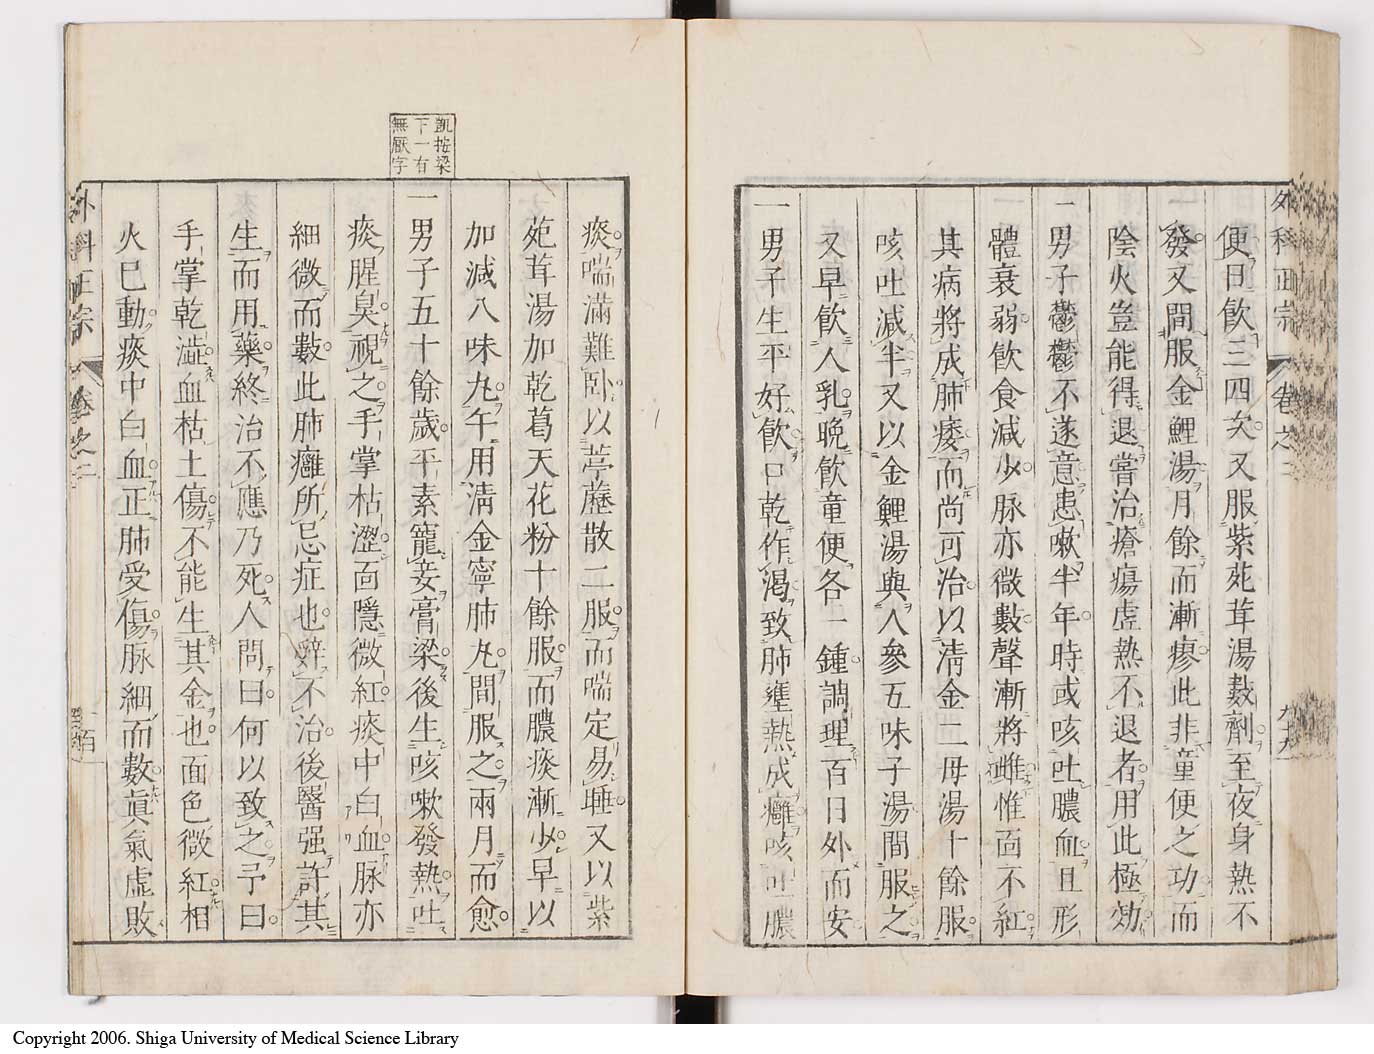 外科正宗 卷之二 九十九
便日飮三四次又服紫菀茸湯數劑至夜身熱不
發又間服金鯉湯月餘而漸瘳此非童便之功而
陰火豈能得退嘗治瘡瘍虛熱不退者用此極効
一男子鬱鬱不遂意患嗽半年時或咳吐膿血且形
體衰弱飮食減少脉亦微數聲漸將雌惟面不紅
其病將成肺痿而尚可治以淸金二母湯十餘服
咳吐減半又以金鯉湯與人參五味子湯間服之
又早飮人乳晚飮童便各一鍾調理百日外而安
一男子生平好飮口乾作渴致肺壅熱成癰咳吐膿
痰喘滿難臥以葶藶散二服而喘定易睡又以紫
菀茸湯加乾葛天花粉十餘服而膿痰漸少早以
加減八味丸午用淸金寧肺丸間服之兩月而愈
凱按梁
下一有
無厭字
一男子五十餘歲平素寵妾膏梁後生咳嗽發熱吐
痰腥臭視之手掌枯澀面隱微紅痰中白血脉亦
細微而數此肺癰所忌症也辭不治後醫强許其
生而用藥終治不應乃死人問曰何以致之予曰
手掌乾澁血枯土傷不能生其金也面色微紅相
火已動痰中白血正肺受傷脉細而數眞氣虛敗
外科正宗 卷之二 百
Copyright 2006. Shiga University of Medical Science Library